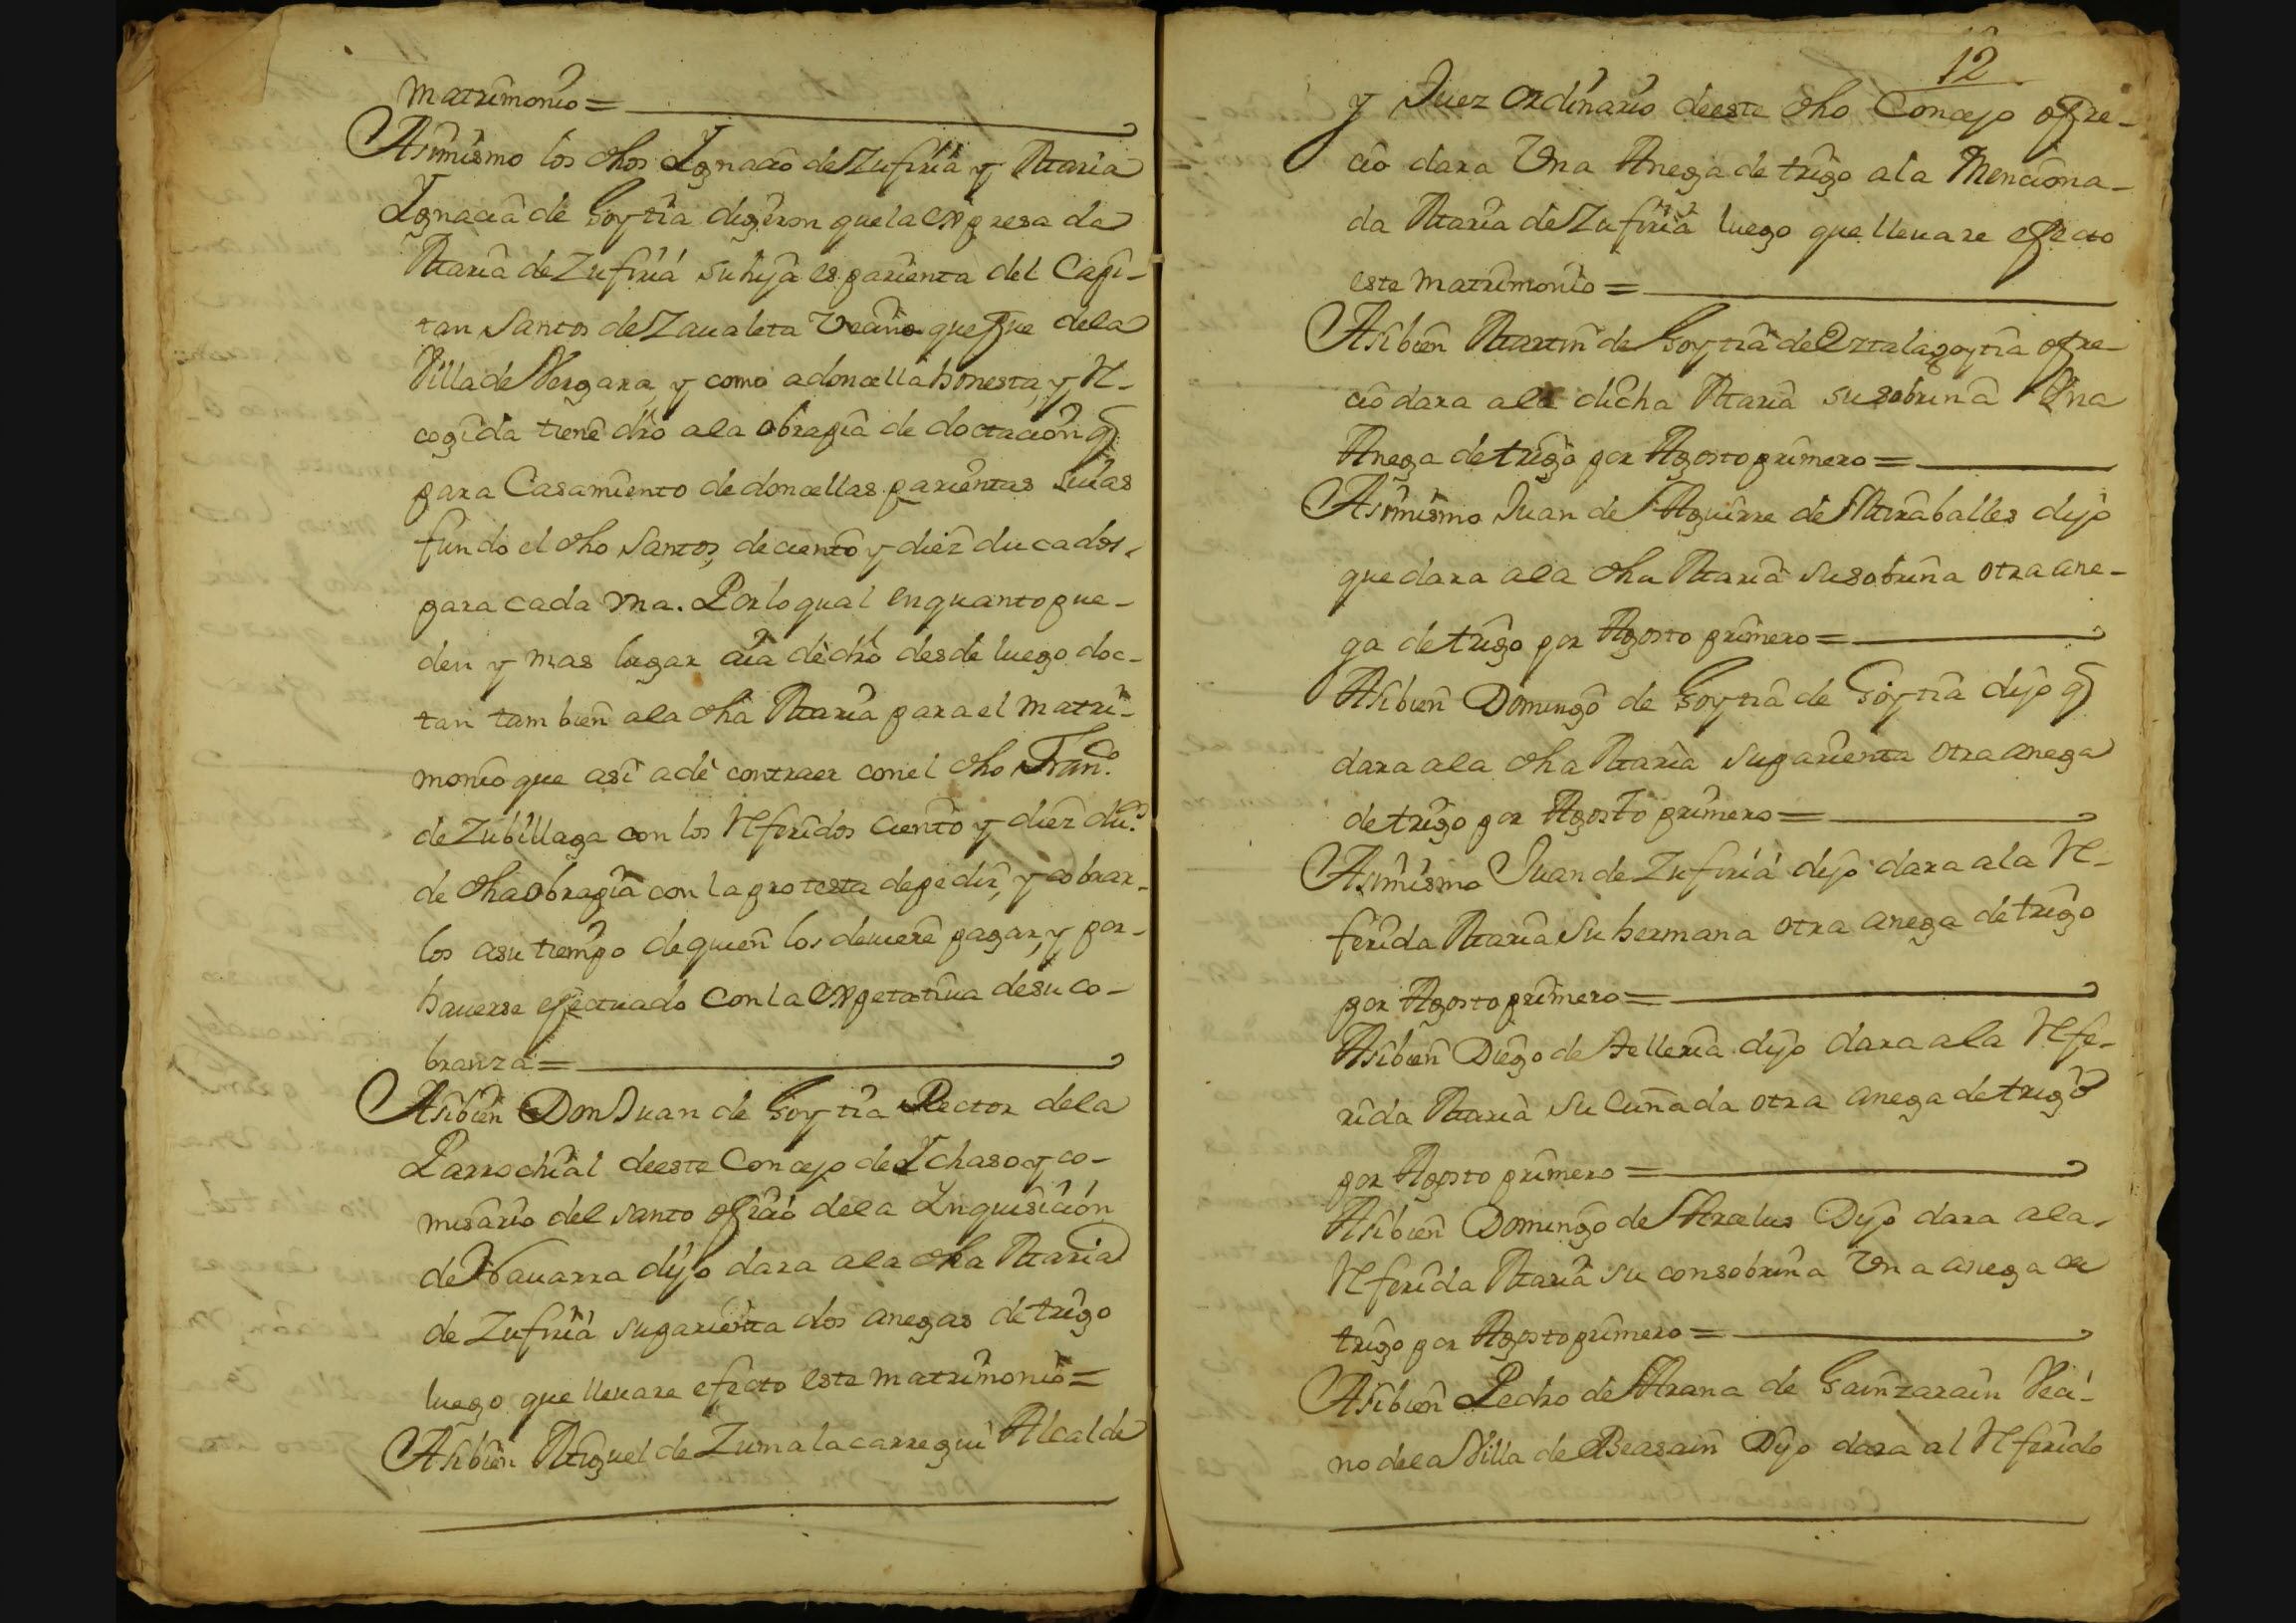 matrimonio=
Asimismo los dhos Ignacio de Zufiria y Maria
Ignacia de Goytia digeron que la expresada
Maria de Zufiriá su hija es parienta del Capi-
tan Santos de Zaualeta Vecino que fue dela
Villa de Vergara, y como a doncella honesta, y re-
cogida tiene dro ala obrapia de doctacion q
para Casamiento de doncellas parientas suias
fundo el dho Santos, de ciento y diez ducados.
para cada vna. Por lo qual en quanto pue-
den y mas lugar aia de dro desde luego doc-
tan tambien ala dha Maria para el matri-
monio que asi a de contraer con el dho Fran.co
de Zubillaga con los referidos ciento y diez du.s
de dha obrapia con la protesta de pedir, y cobrar-
los asu tiempo de quien los deuiere pagar, y por-
hauerse efectuado con la expetatiua de su co-
branza=
Asibien Don Juan de Goytia Rector dela
Parrochial deeste Concejo de Ichaso y co-
misario del santo oficio dela Inquisicion
de Nauarra dijo dara ala dha Maria
de Zufiriá su parienta dos anegas de trigo
luego que lleuare efecto este matrimonio=
Asibien Miguel de Zumalacarregui Alcalde
12
y Juez ordinario deeste dho Concejo ofre-
cio dara Una Anega de trigo ala Menciona-
da Maria de Zufiria luego que lleuare efecto
este matrimonio=
Asibien Martin de Goytia de Oztalagoytia ofre-
cio dara ala dicha Maria su sobrina Una
Anega de trigo por Agosto primero=
Asimismo Juan de Aguirre de Miraballes dijo
que dara ala dha Maria su sobrina otra ane-
ga de trigo por Agosto primero=
Asibien Domingo de Goytia de Goytia dijo q
dara ala dha Maria su parienta otra anega
de trigo por Agosto primero=
Asimismo Juan de Zufiriá dijo dara ala re-
ferida Maria su hermana otra anega de trigo
por Agosto primero=
Asibien Diego de Telleria dijo dara ala refe-
rida Maria su cuñada otra anega de trigo
por Agosto primero=
Asibien Domingo de Arcelus Dijo dara ala
referida Maria su consobrina Vna anega de
trigo por Agosto primero=
Asibien Pedro de Arana de Gainzarain Veci-
no dela Villa de Beasain Dijo dara al referido